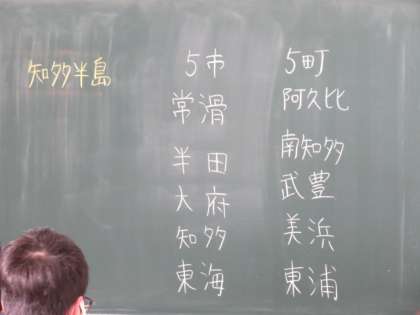 知多半島
5市
常滑
半田
大府
知多
東海
5町
阿久比
南知多
武豊
美浜
東浦